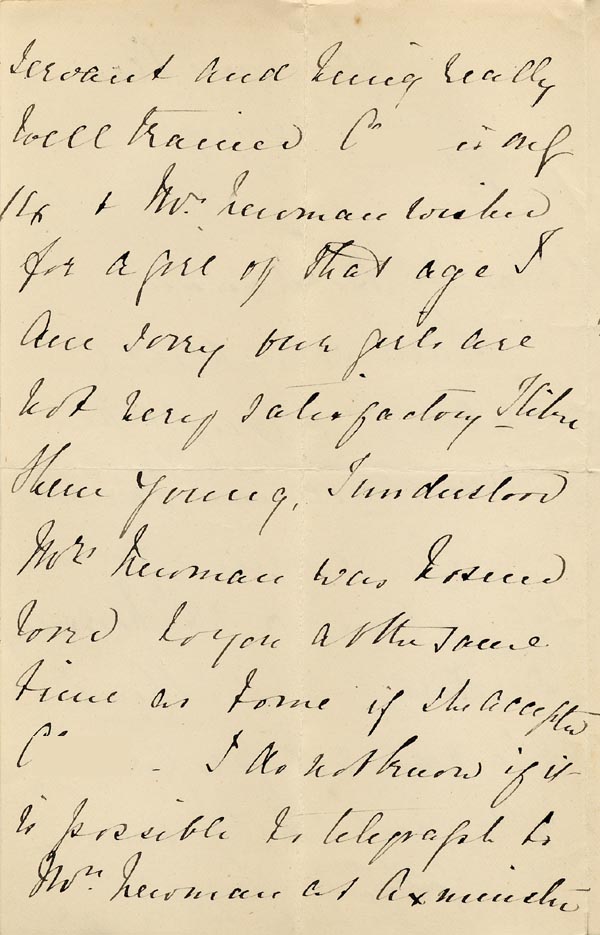 servant and being really
well trained C is only
14 & Mrs. Newman wished
for a girl of that age I
am sorry our girls are
not very satisfactory
them young, I understood
Mrs Newman was to send
word to you at the same
time as to me if she accepted
C - I do not know if it
is possible to telegraph to
Mrs. Newman at Axminster